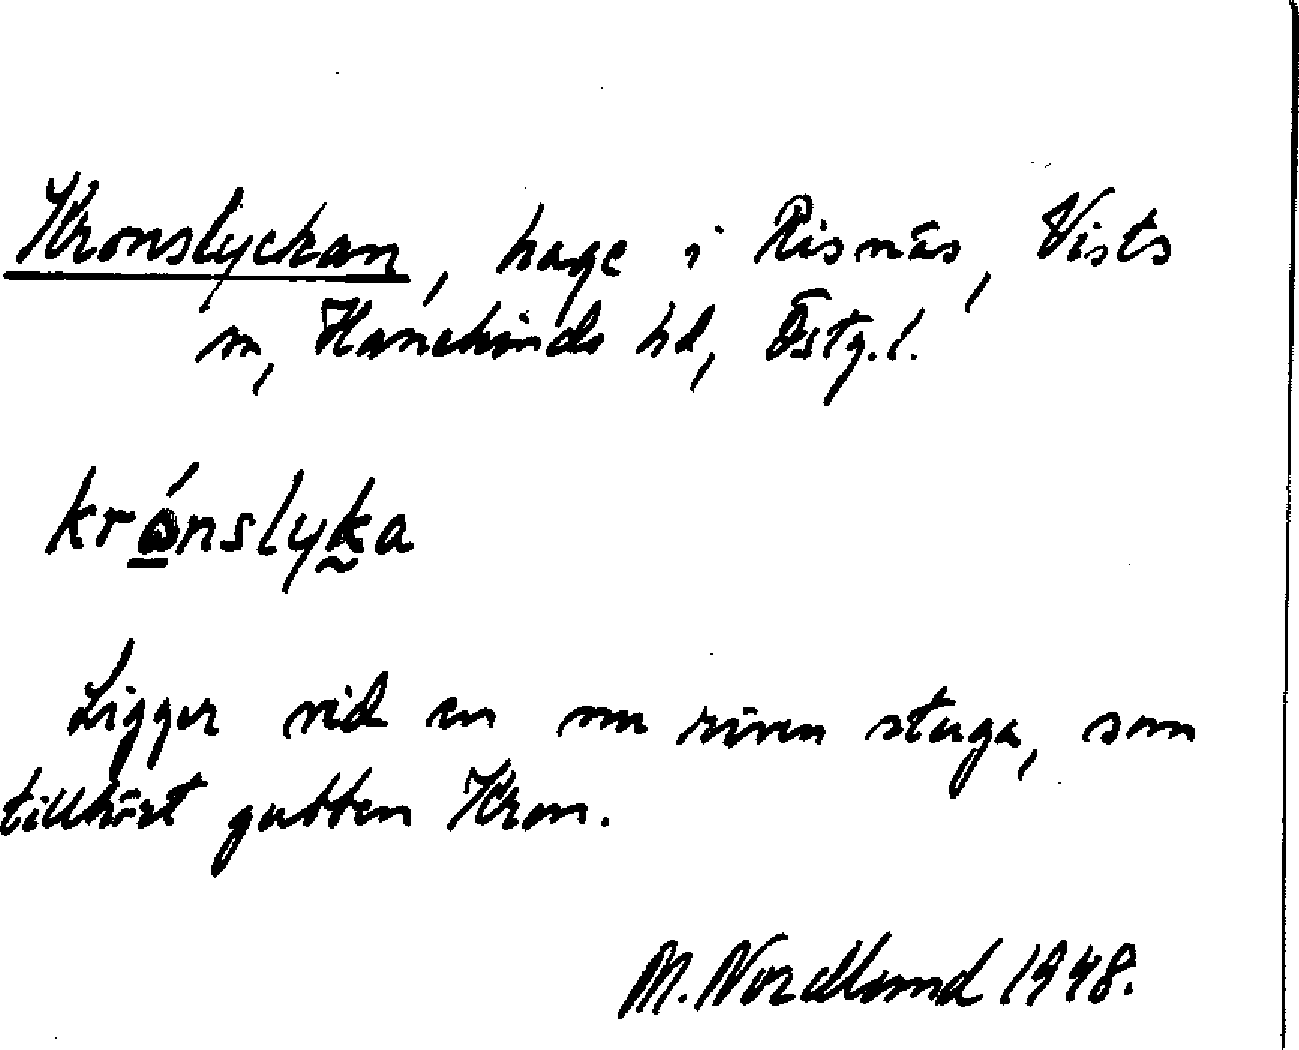 Kronslyckan, hage i Risnäs, Vists
sn, Hanekinds hd, Östg.l.
krónslyka
Ligger vid en nu riven stuga, som
tillhört gubben Kron.
M. Nordlund 1948.